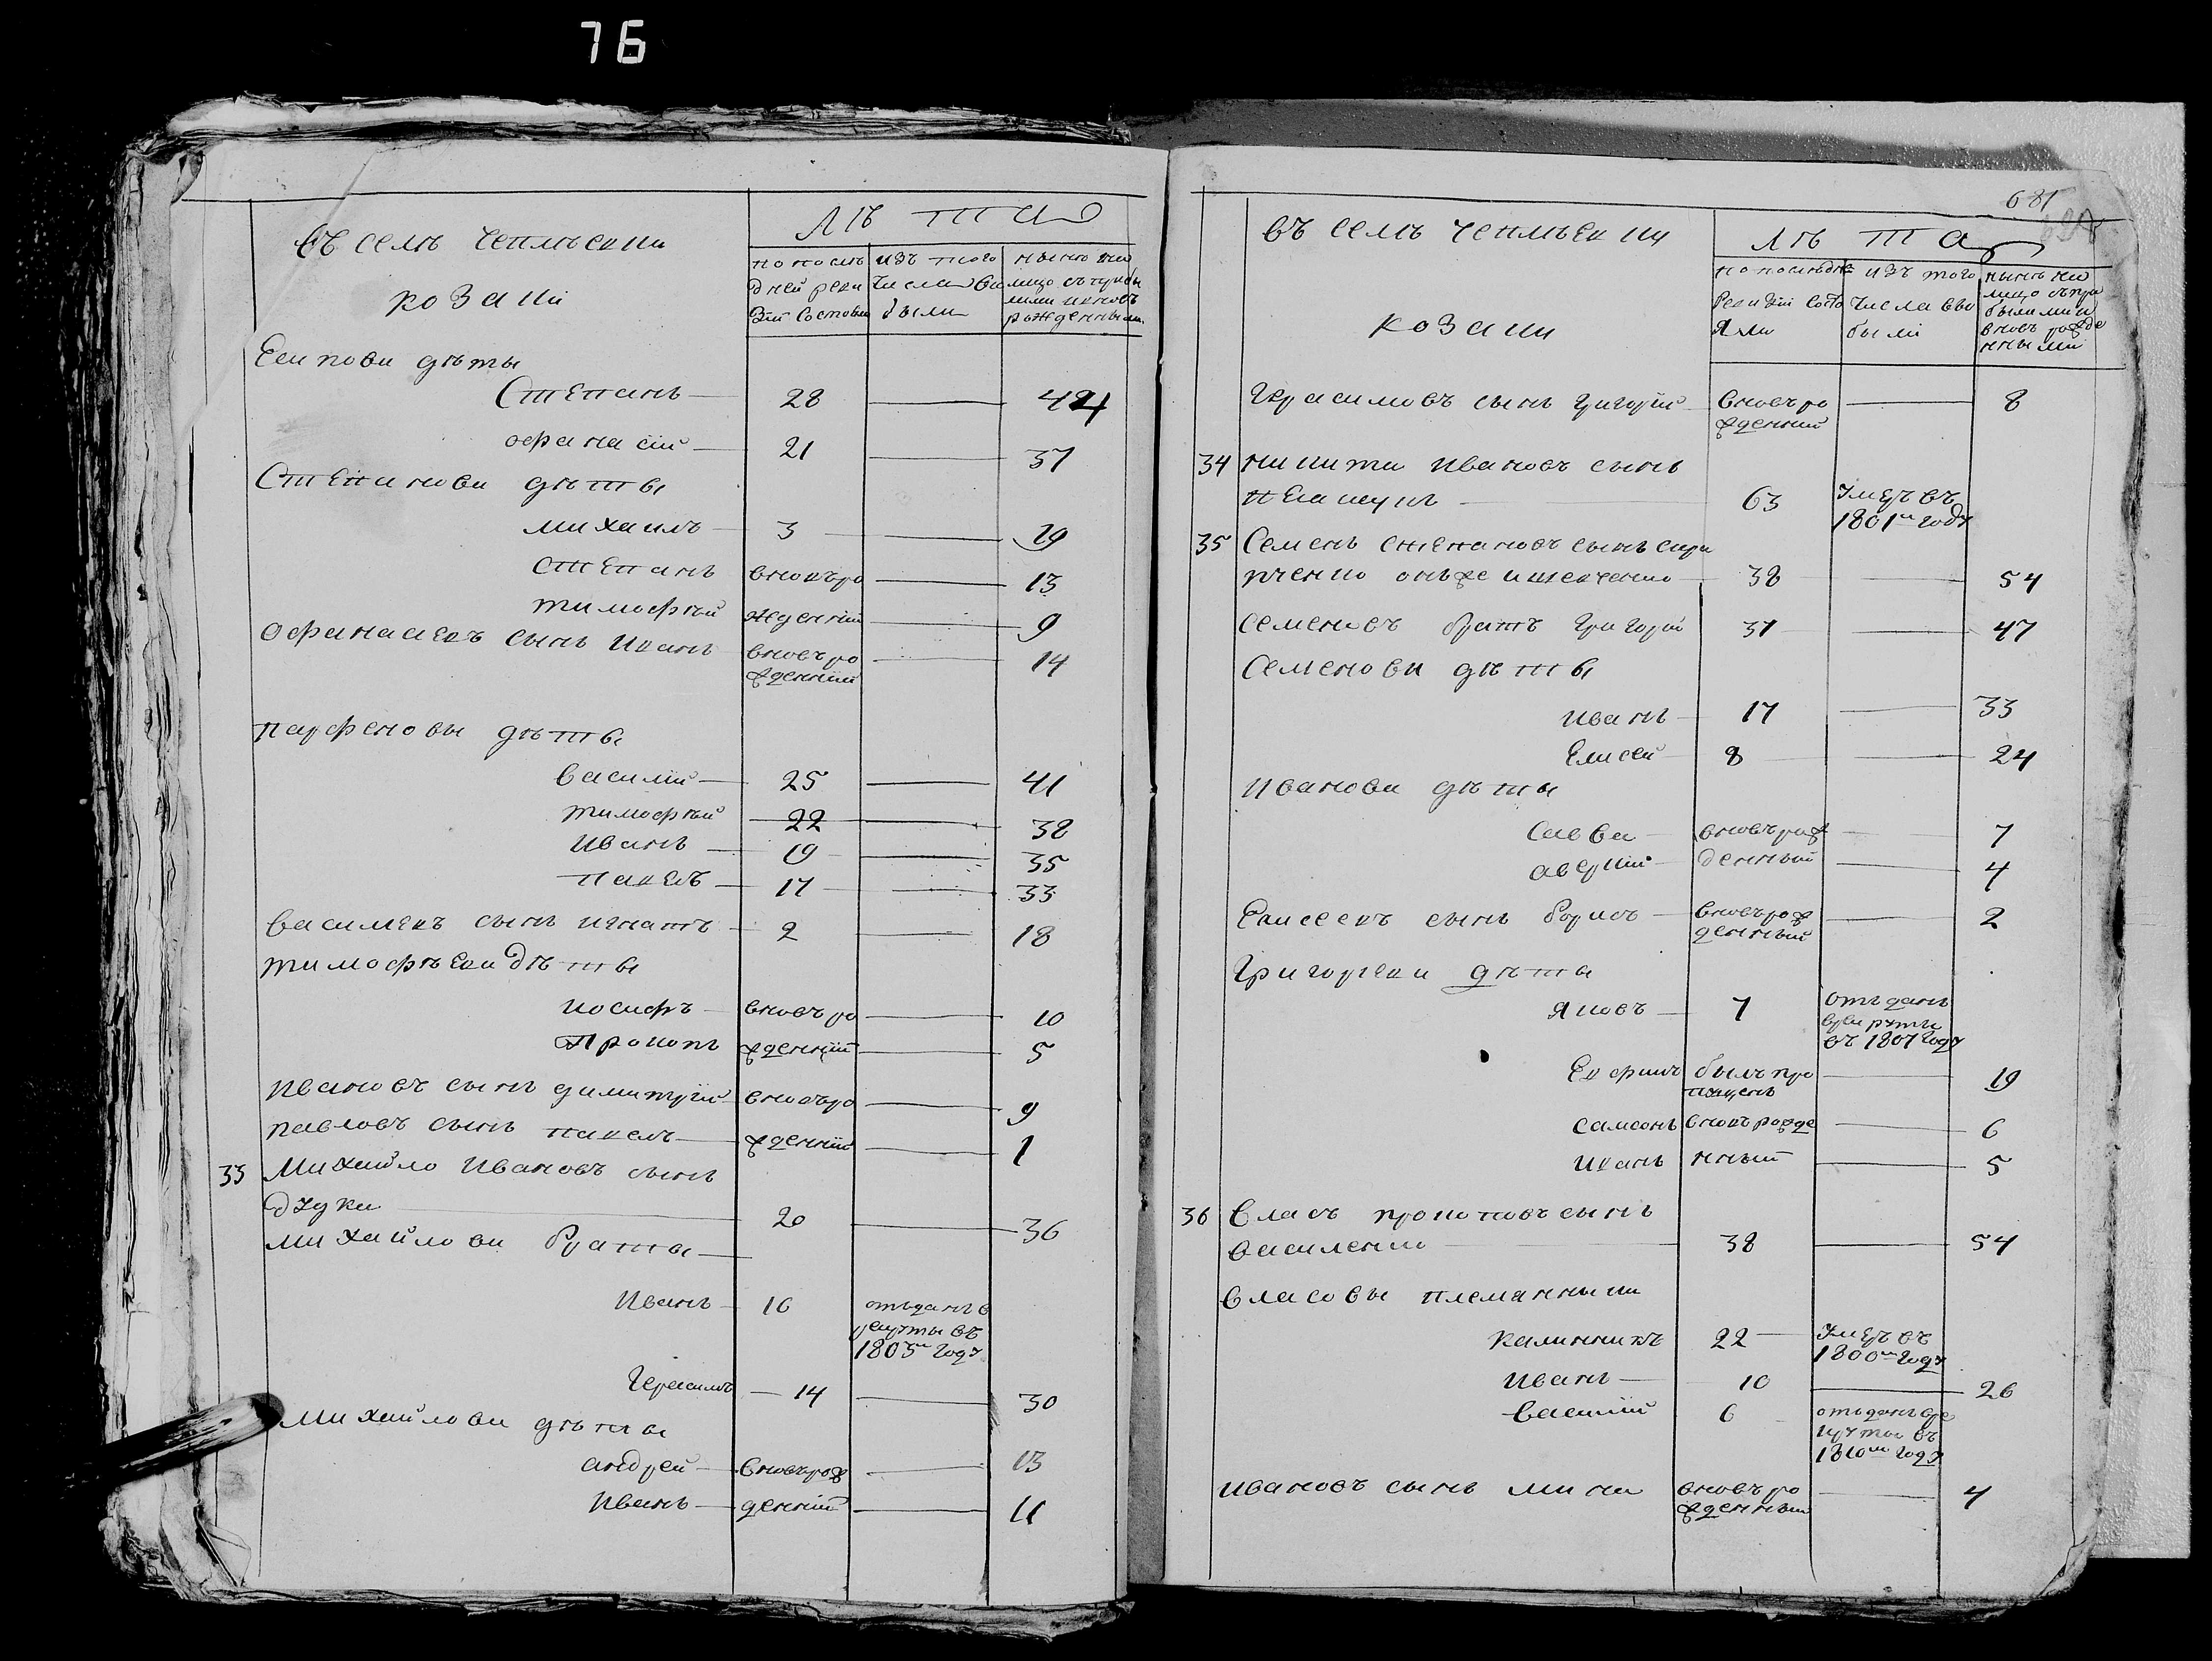 76
въ селѣ чепмѣеки
козаки
Лѣта
по послѣ
дней реви
зіи состояли
изъ того
числа вы
были
нынѣ на
лицо съ прибы
лыми и вновъ
рожденными
Есипови дѣты
Степанъ 28 44
офанасій 21 37
Степанови дѣты
михаилъ 3 19
степанъ вновъро 13
тимофѣй жденній 9
офанасиевъ сынъ Иванъ вновъро 14
жденній
парфеновы дѣты
василій 25 41
тимофѣй 22 38
Иванъ 19 35
павелъ 17 33
василиевъ сынъ игнатъ 2 18
тимофѣеви дѣты
иосифъ вновъро 10
Прокопъ жденній 5
Ивановъ сынъ димитрій вновъро 9
павловъ сынъ павелъ жденній 1
33 Михайло Ивановъ сынъ
дзука 20 36
михайлови браты
Иванъ 16 отъданъ в
рекруты въ
1805м году
Герасимъ 14 30
Михайлови дѣты
андрей вновърож 13
Иванъ денній 11
681
въ селѣ чепмѣеки
козаки
Лѣта
по послѣдней
ревизіи состо
яли
изъ того
числа вы
были
нынѣ на
лицо съ при
былыми и
вновъ рожде
нными
Герасимовъ сынъ григорій вновъро 8
жденній
34 никита Ивановъ сынъ
63 Умеръ въ
1801м году
35 Семенъ степановъ сынъ
онъже 38 54
семеновъ братъ григорій 31 47
семенови дѣты
иванъ 17 33
Елисей 8 24
Иванови дѣты
савва вновърож 7
аверкий денный 4
Елисеевъ сынъ борисъ вновърож 2
денный
Григориеви дѣты
яковъ 7 отъданъ
в рекруты
въ 1807 году
Ефимъ былъ про 19
пущенъ
самсонъ вновърожде 6
иванъ нный 5
36 Власъ прокоповъ сынъ
василенко 38 54
власовы племянныки
калинникъ 22 Умеръ въ
1800м году
Иванъ 10 26
василій 6 отъданъ вре
круты въ
1810м году
ивановъ сынъ мина вновъро 4
жденный